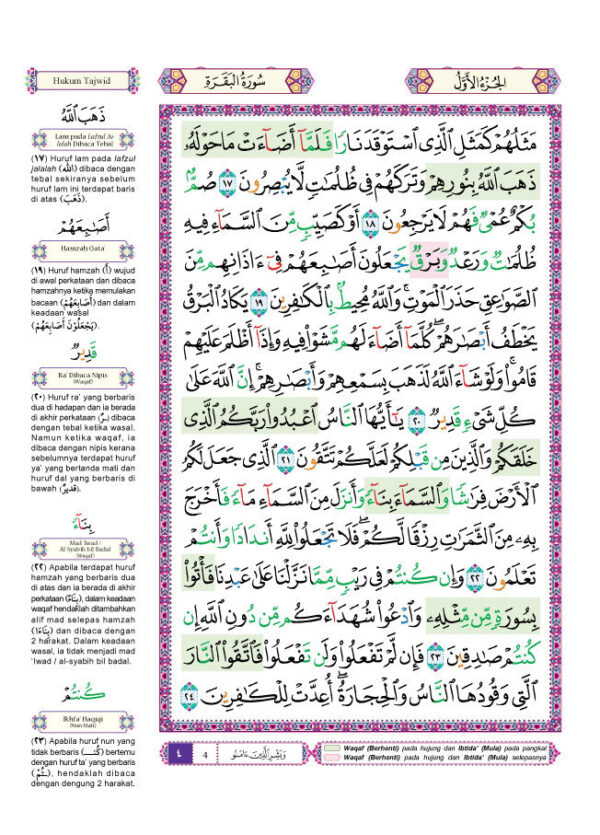 Hukum Tajwid
سُورَةُ الْبَقَرَةِ
الجُزْءُ الأَوَّلُ
ذَهَبَ اللَّهُ
Lam pada Lafzul Ja-
lalah Dibaca Tebal
(١٧) Huruf lam pada lafzul
jalalah (الله) dibaca dengan
tebal sekiranya sebelum
huruf lam ini terdapat baris
di atas (ذَهَبَ).
أَصَابِعَهُمْ
Hamzah Qata'
(١٩) Huruf hamzah (أ) wujud
di awal perkataan dan dibaca
hamzahnya ketika memulakan
bacaan (أَصَابِعَهُمْ) dan dalam
keadaan wasal
(يَجْعَلُوْنَ أَصَابِعَهُمْ).
قَدِيرٌ
Ra' Dibaca Nipis
(Waqaf)
(٢٠) Huruf ra' yang berbaris
dua di hadapan dan ia berada
di akhir perkataan (يرٌ) dibaca
dengan tebal ketika wasal.
Namun ketika waqaf, ia
dibaca dengan nipis kerana
sebelumnya terdapat huruf
ya' yang bertanda mati dan
huruf dal yang berbaris di
bawah (قَدِيرٌ).
بِنَاءً
Mad 'Iwad /
Al-Syabih bil Badal
(Waqaf)
(٢٢) Apabila terdapat huruf
hamzah yang berbaris dua
di atas dan ia berada di akhir
perkataan (بِنَاءً), dalam keadaan
waqaf hendaklah ditambahkan
alif mad selepas hamzah
(بِنَاءَا) dan dibaca dengan
2 harakat. Dalam keadaan
wasal, ia tidak menjadi mad
'Iwad / al-syabih bil badal.
كُنتُمْ
Ikhfa' Haqiqi
(Nun Mati)
(٢٣) Apabila huruf nun yang
tidak berbaris (كُنـ) bertemu
dengan huruf ta' yang berbaris
(ـتُمْ), hendaklah dibaca
dengan dengung 2 harakat.
مَثَلُهُمْ كَمَثَلِ الَّذِي اسْتَوْقَدَ نَارًا فَلَمَّا أَضَاءَتْ مَا حَوْلَهُ
ذَهَبَ اللَّهُ بِنُورِهِمْ وَتَرَكَهُمْ فِي ظُلُمَاتٍ لَّا يُبْصِرُونَ ١٧ صُمٌّ
بُكْمٌ عُمْيٌ فَهُمْ لَا يَرْجِعُونَ ١٨ أَوْ كَصَيِّبٍ مِّنَ السَّمَاءِ فِيهِ
ظُلُمَاتٌ وَرَعْدٌ وَبَرْقٌ يَجْعَلُونَ أَصَابِعَهُمْ فِي ءَاذَانِهِم مِّنَ
الصَّوَاعِقِ حَذَرَ الْمَوْتِ ۚ وَاللَّهُ مُحِيطٌ بِالْكَافِرِينَ ١٩ يَكَادُ الْبَرْقُ
يَخْطَفُ أَبْصَارَهُمْ ۖ كُلَّمَا أَضَاءَ لَهُم مَّشَوْا فِيهِ وَإِذَا أَظْلَمَ عَلَيْهِمْ
قَامُوا ۚ وَلَوْ شَاءَ اللَّهُ لَذَهَبَ بِسَمْعِهِمْ وَأَبْصَارِهِمْ ۚ إِنَّ اللَّهَ عَلَىٰ
كُلِّ شَيْءٍ قَدِيرٌ ٢٠ يَا أَيُّهَا النَّاسُ اعْبُدُوا رَبَّكُمُ الَّذِي
خَلَقَكُمْ وَالَّذِينَ مِن قَبْلِكُمْ لَعَلَّكُمْ تَتَّقُونَ ٢١ الَّذِي جَعَلَ لَكُمُ
الْأَرْضَ فِرَاشًا وَالسَّمَاءَ بِنَاءً وَأَنزَلَ مِنَ السَّمَاءِ مَاءً فَأَخْرَجَ
بِهِ مِنَ الثَّمَرَاتِ رِزْقًا لَّكُمْ ۖ فَلَا تَجْعَلُوا لِلَّهِ أَندَادًا وَأَنتُمْ
تَعْلَمُونَ ٢٢ وَإِن كُنتُمْ فِي رَيْبٍ مِّمَّا نَزَّلْنَا عَلَىٰ عَبْدِنَا فَأْتُوا
بِسُورَةٍ مِّن مِّثْلِهِ وَادْعُوا شُهَدَاءَكُم مِّن دُونِ اللَّهِ إِن
كُنتُمْ صَادِقِينَ ٢٣ فَإِن لَّمْ تَفْعَلُوا وَلَن تَفْعَلُوا فَاتَّقُوا النَّارَ
الَّتِي وَقُودُهَا النَّاسُ وَالْحِجَارَةُ ۖ أُعِدَّتْ لِلْكَافِرِينَ ٢٤
٤
4
Waqaf (Berhenti) pada hujung dan Ibtida' (Mula) pada pangkal
Waqaf (Berhenti) pada hujung dan Ibtida' (Mula) selepasnya